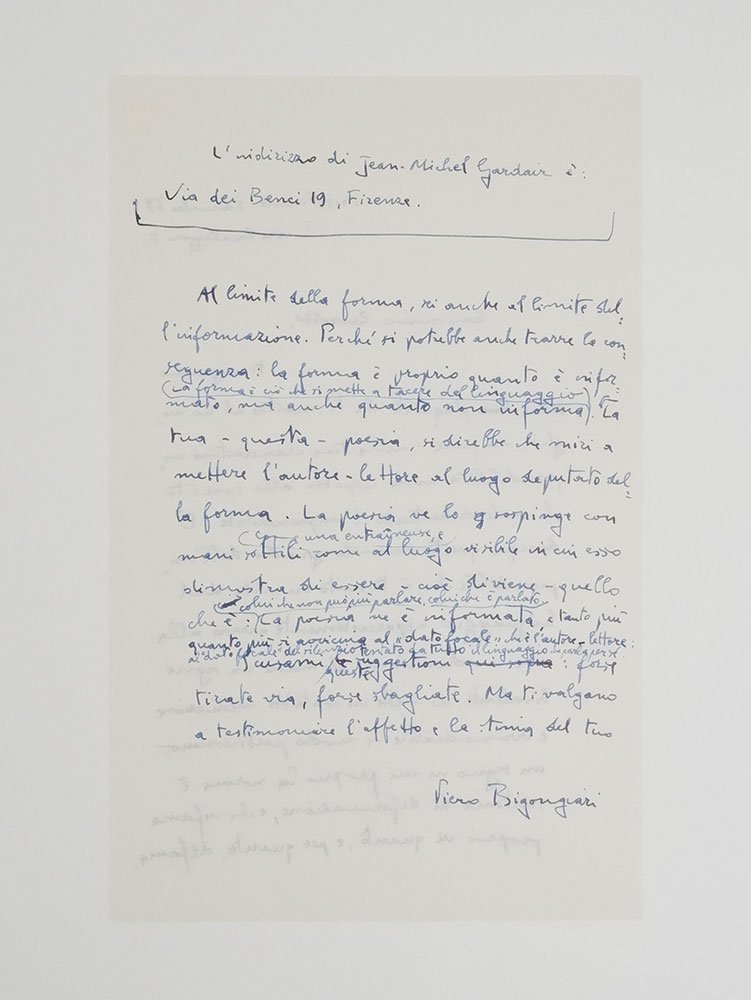 L'indirizzo di Jean-Michel Gardair è:
Via dei Benci 19, Firenze.
Al limite della forma, sei anche al limite del=
l'informazione. Perché si potrebbe anche trarre la con=
seguenza: la forma è proprio quanto è infor=
(la forma è ciò che si mette a tacere del linguaggio)
mato, ma anche quanto non informa. La
tua - questa - poesia, si direbbe che miri a
mettere l'autore-lettore al luogo deputato del=
la forma. La poesia ve lo sospinge con
una entraîneuse, e
mani sottili come al luogo visibile in cui esso
dimostra di essere - cioè diviene - quello
colui che non può più parlare, colui che è parlato.
che è: La poesia ne è informata, e tanto più
quanto più si avvicina al «dato focale» che è l'autore-lettore:
al dato focale del silenzio tentato da tutto il linguaggio
scusami queste suggestioni qui sopra: forse
tirate via, forse sbagliate. Ma ti valgano
a testimoniare l'affetto e la stima del tuo
Piero Bigongiari